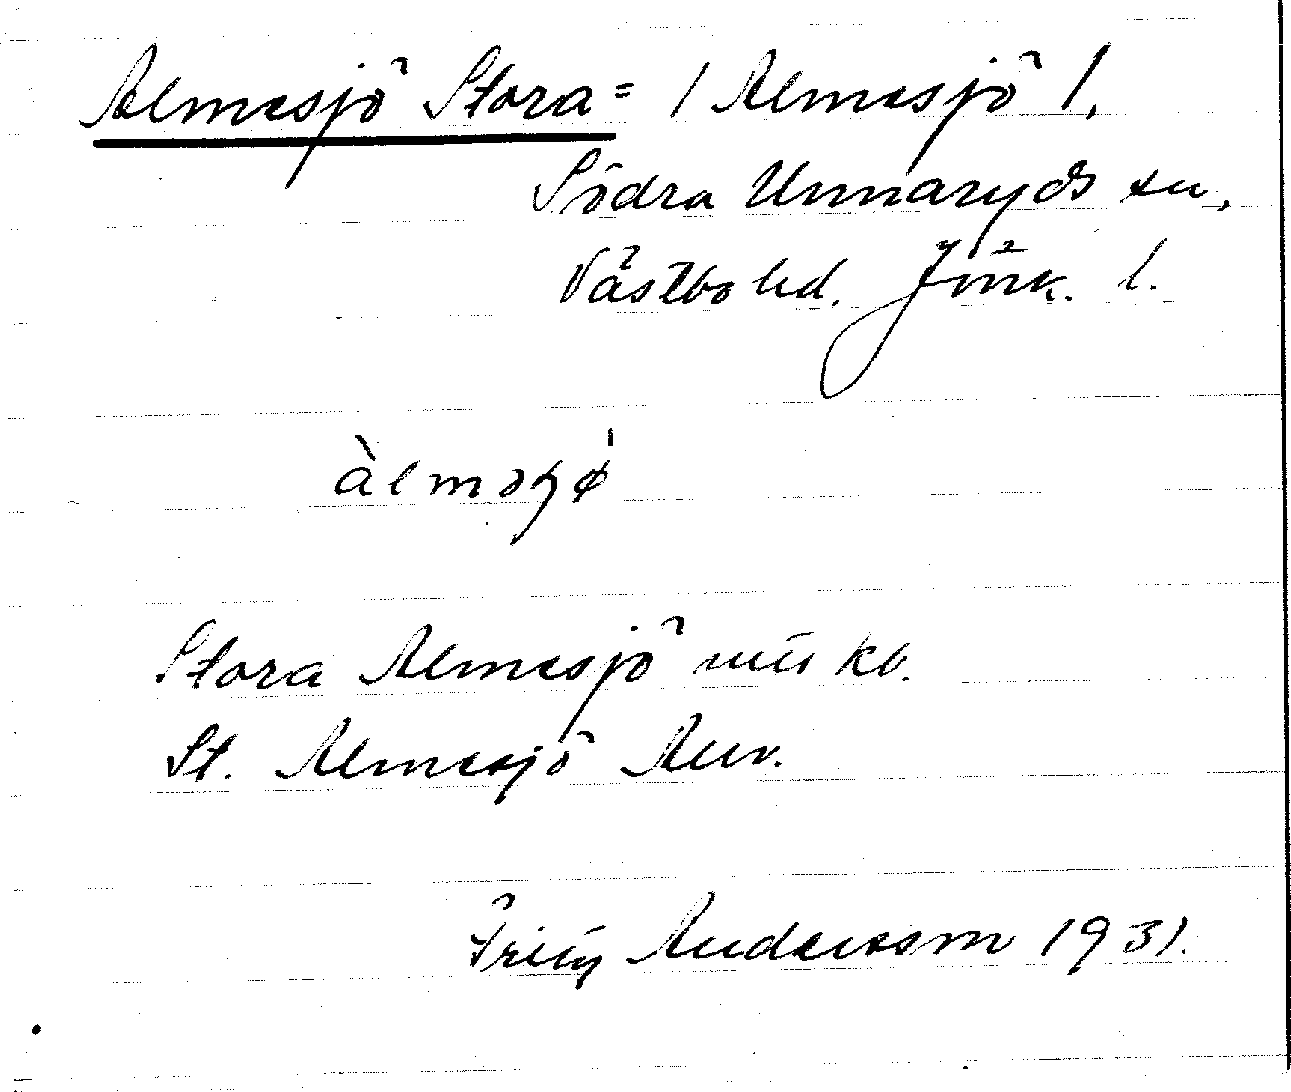 Almesjö Stora = / Almesjö /,
Södra Unnaryds sn,
Västbo hd. Jönk. l.
Stora Almesjö kb.
St. Almesjö
Andersson 1931.